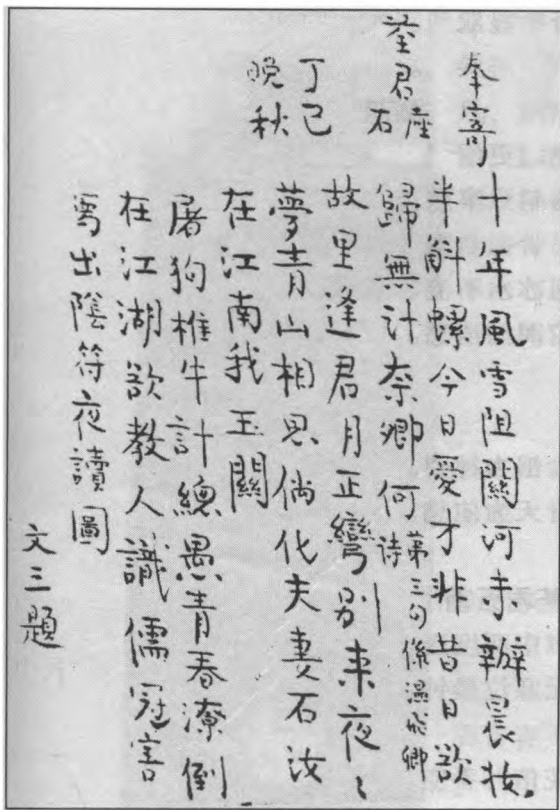 奉寄
荃君座右
丁巳
晚秋
十年風雪阻關河未辦晨妝
半斛螺今日愛才非昔日欲
歸無計奈卿何 第三句係溫飛卿詩
故里逢君月正彎別來夜〻
夢青山相思倘化夫妻石汝
在江南我玉關
屠狗椎牛計總愚青春潦倒
在江湖欲教人識儒冠害
寫出陰符夜讀圖
文三題